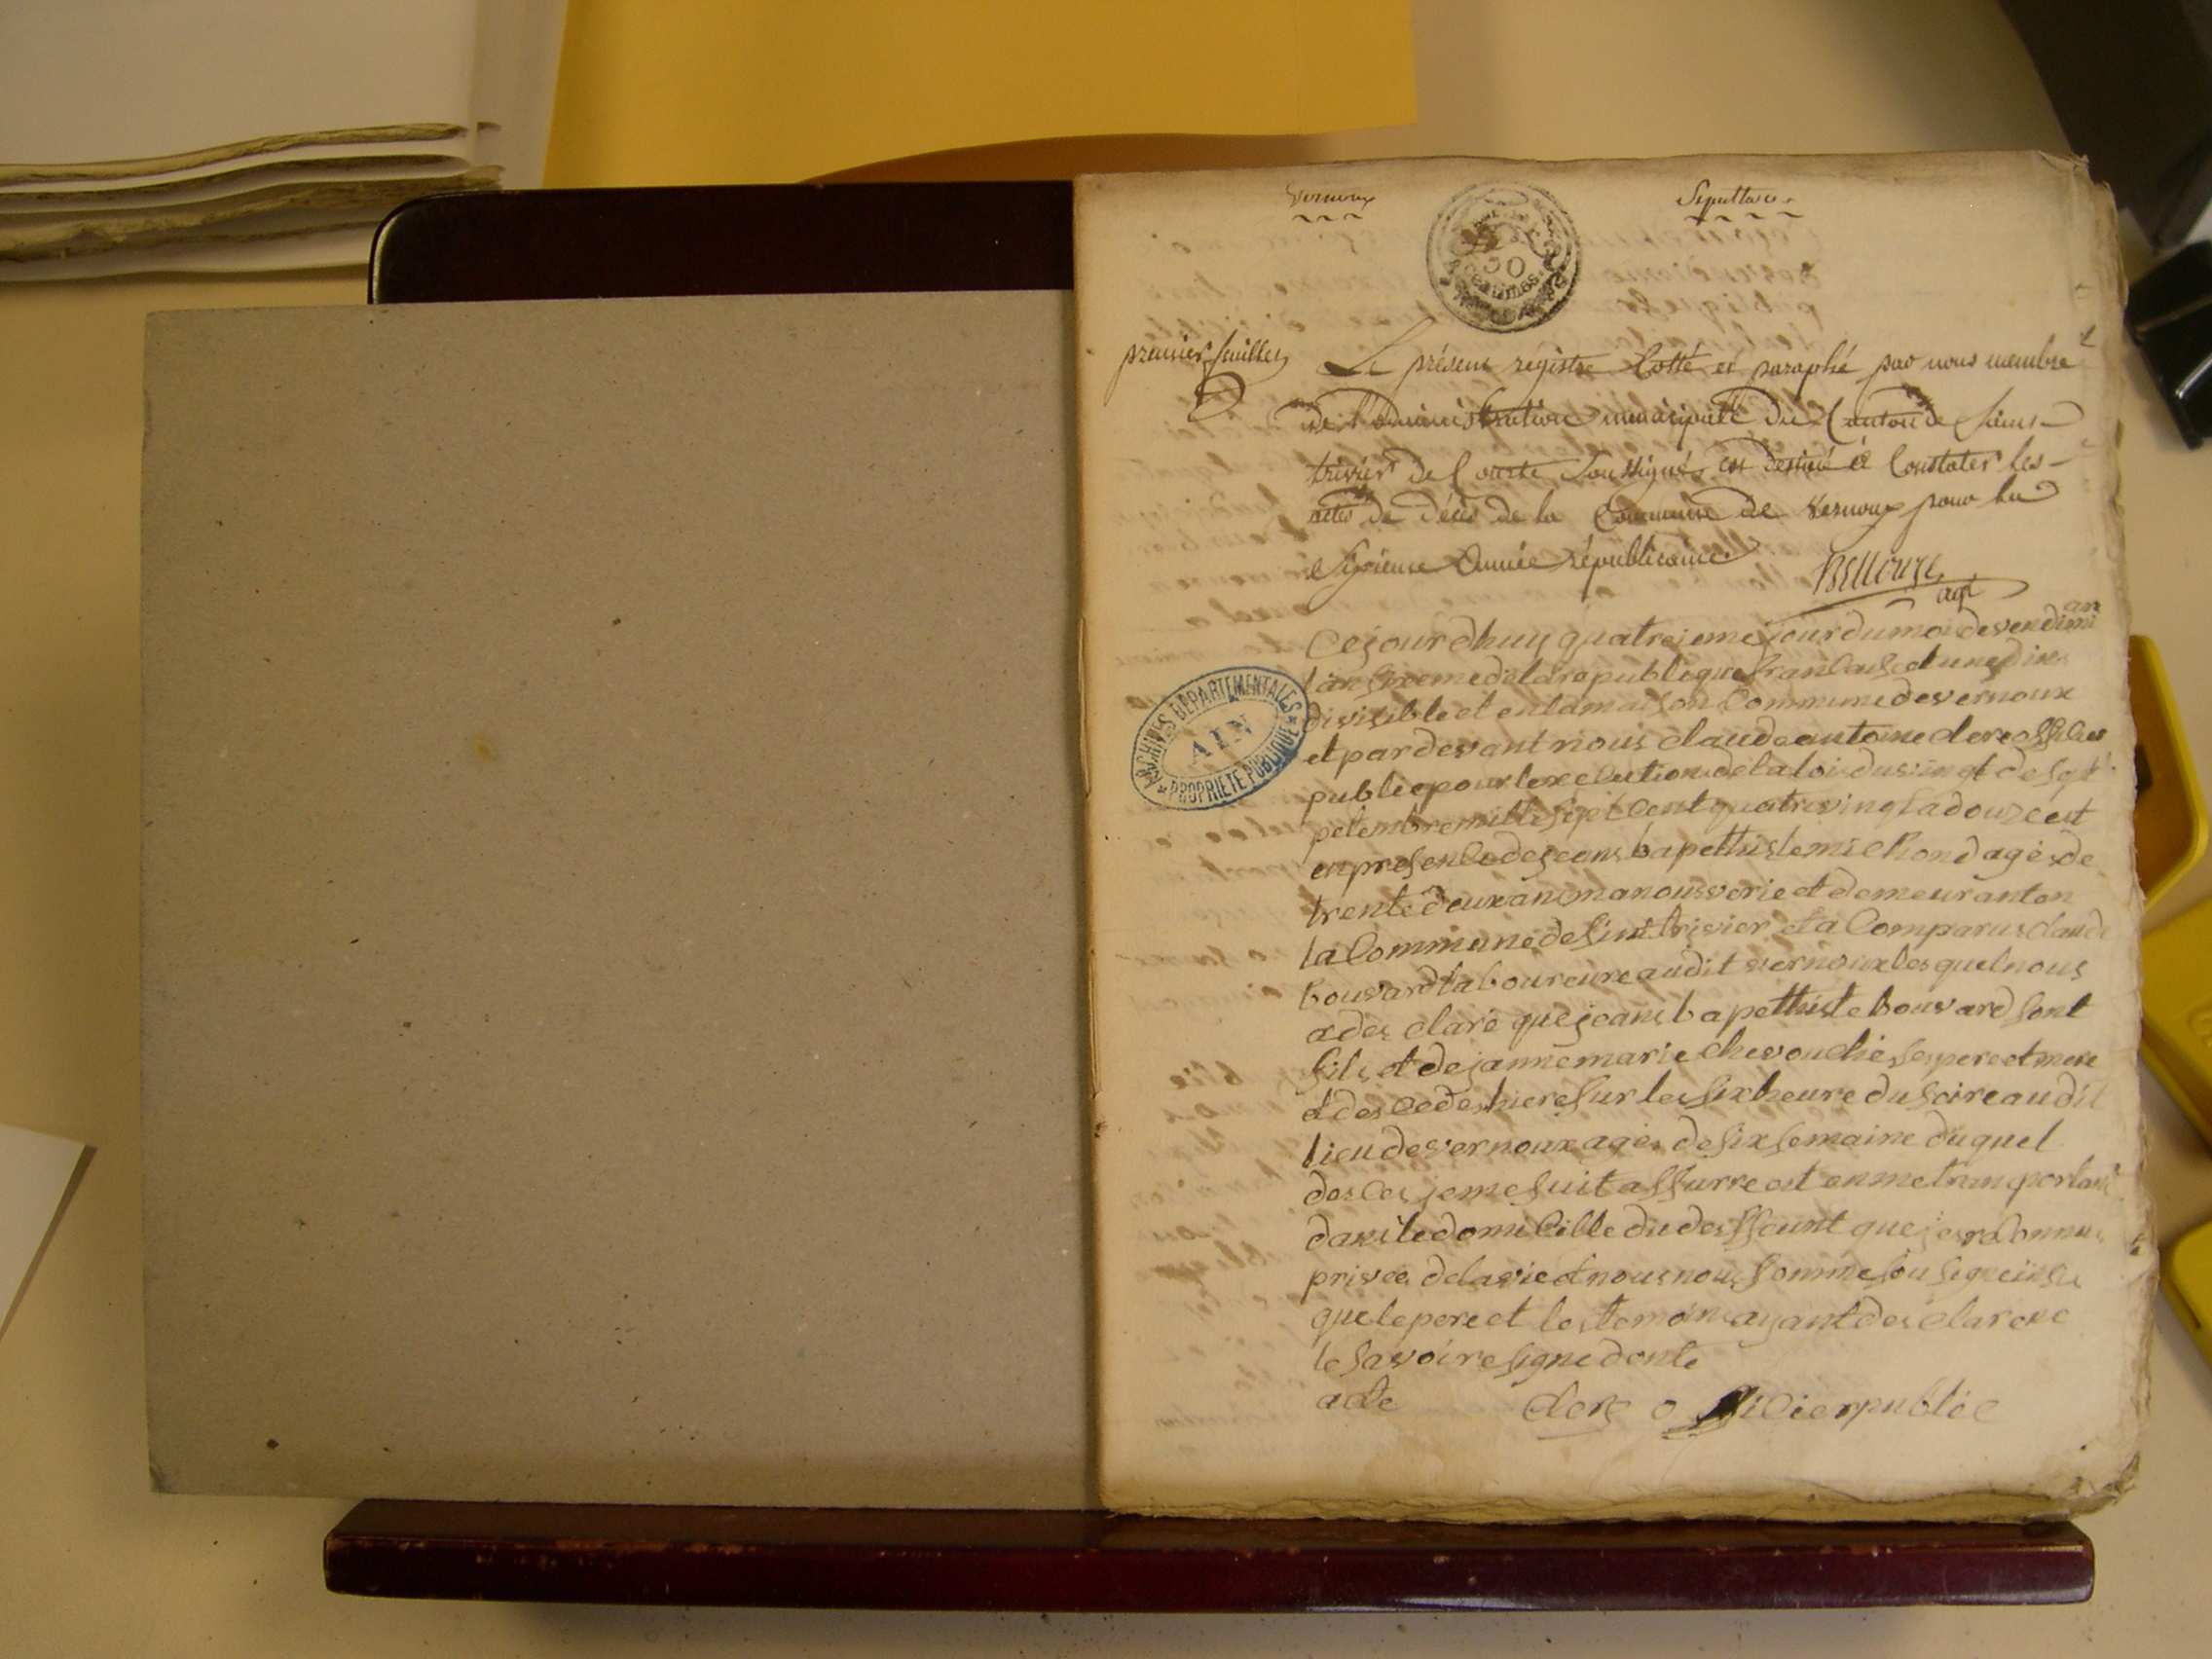 Vernoux
Sépulture
50
centimes
premier feuillet
Le présent registre Cotté et paraphé par nous membre
de l'administration municipalle du Canton de Saint
trivier de Courte Soussigné, est destiné à Constater les
actes de décès de la Commune de Vernoux pour la
Sixieme Année républicaine
agt
Cejourdhuy quatreieme jour du moi de vendimi
an
lan sixieme de la republique francaise et une Dine
divisible et en la maison Commune de vernoux
et par devant nous claude antoine clerc officier
public pour lexecution de la loi du vingt de sept
petembre mille sept cent quatre vingt a douze est
en presence de jeans bapettiste michond agés de
trente deux ans manousvrie et demeurant on
la Commune de sint trivier et a Comparus claude
bouvard laboureure audit vernoux lesquel nous
a des clare que jeans bapettiste bouvard sont
fils et de janne marie chevouchie ses pere et mere
et des cedes hiere sur les six heure du soire audit
lieu de vernoux ages de six semaine duquel
des ces je me suit assurre est en me transportant
dans le domicille du deffeunt que jes reconnu
privee de la vie et nous nous somme sou
que le pere et les temoin ayant des clare ne
le savoire signe dont
acte
clerc officier public
ARCHIVES DEPARTEMENTALES
AIN
PROPRIETE PUBLIQUE